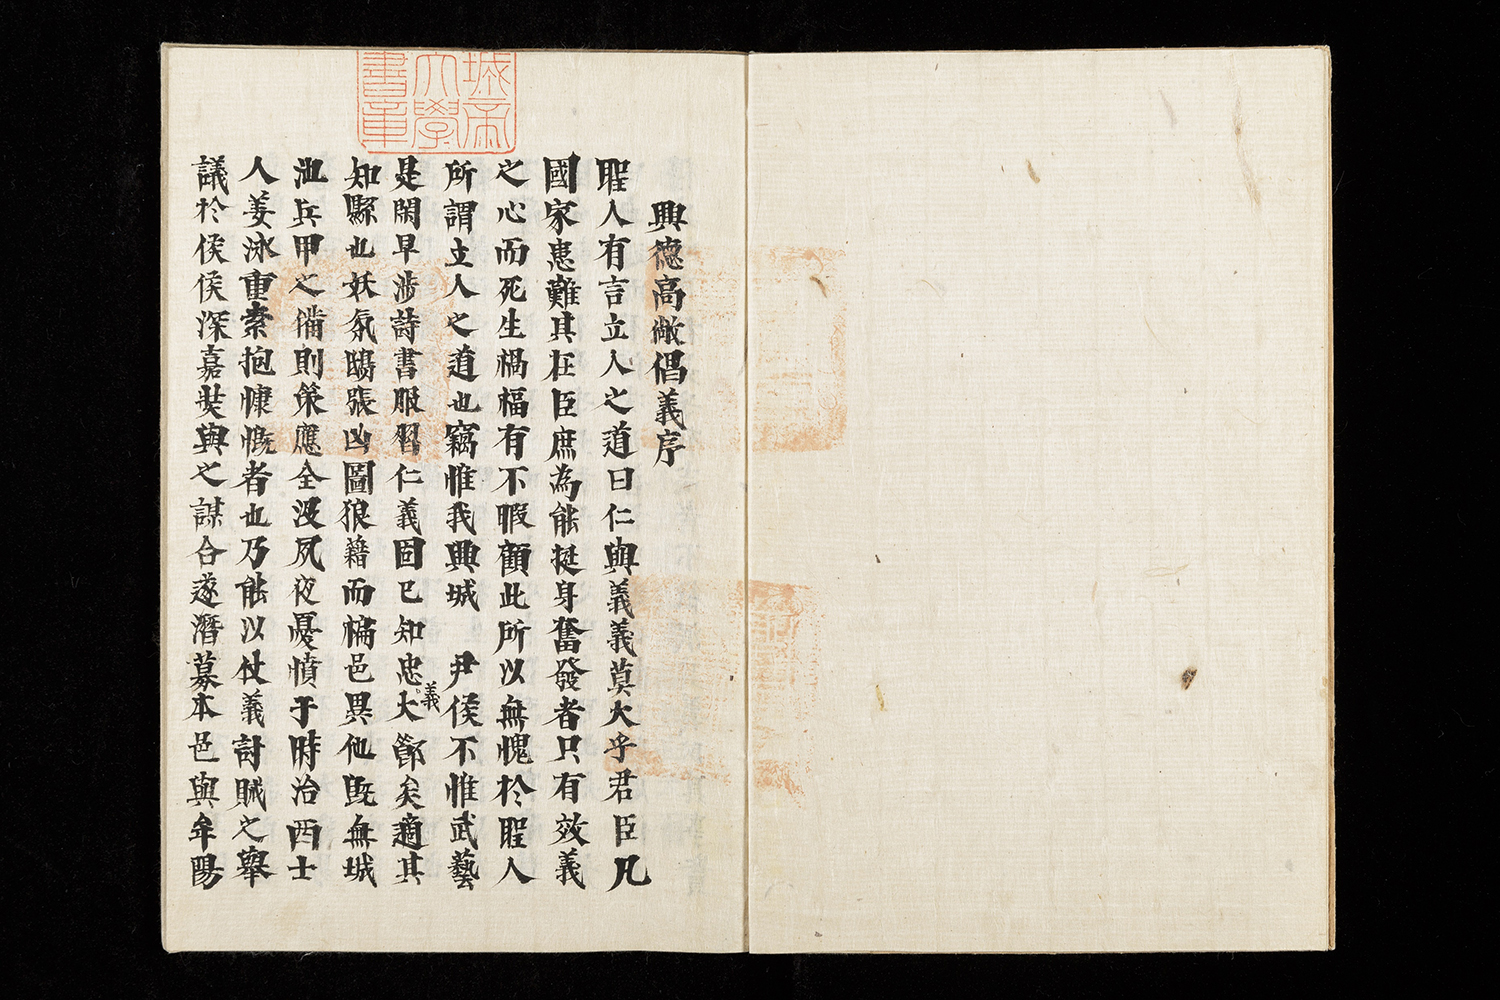 興德高敞倡義序
聖人有言立人之道曰仁與義義莫大乎君臣凡
國家患難其在臣庶為能挺身奮發者只有效義
之心而死生禍福有不暇顧此所以無愧於聖人
所謂立人之道也竊惟我興城 尹侯不惟武藝
是閑早涉詩書服習仁義固已知忠義大節矣適其
知縣也妖氛鴟張凶圖狼藉而褊邑異他既無城
池兵甲之備則策應全沒夙夜憂憤于時治西士
人姜泳重素抱慷慨者也乃能以仗義討賊之舉
議於侯侯深嘉奬與之謀合遂潛募本邑與牟陽
城帝
大學
書章